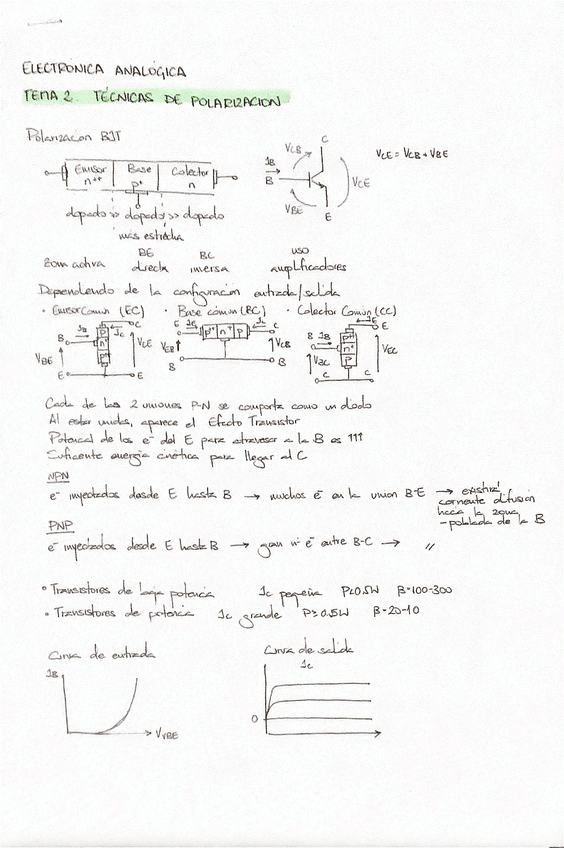 ELECTRÓNICA ANALÓGICA
TEMA 2. TÉCNICAS DE POLARIZACION
Polarizacion BJT
Emisor Base Colector
n++ p+ n
dopado >> dopado >> dopado
más estrecha
C
VCB
IB
B
VCE
VBE
E
VCE = VCB + VBE
BE BC uso
zona activa directa inversa amplificadores
Dependiendo de la configuracion entrada/salida
• Emisor Comun (EC) • Base comun (BC) • Colector Comun (CC)
B IB C IC VBE VCE E E p n+ p++
E IE C IC VEB VCB B B p++ n+ p
B IB E IE VBC VEC C C p++ n+ p
Cada de las 2 uniones P-N se comporta como un diodo
Al estar unidas, aparece el Efecto Transistor
Potencial de los e- del E para atravesar a la B es ↑↑↑
Suficiente energia cinética para llegar al C
NPN
e- inyectados desde E hasta B → muchos e- en la union B-E → existirá
corriente difusion
hacia la zona
-poblada de la B
PNP
e- inyectados desde E hasta B → gran nº e- entre B-C → "
• Transistores de baja potencia Ic pequeña P<0.5W B=100-300
• Transistores de potencia Ic grande P≥0.5W B=20-10
Curva de entrada Curva de salida
IB Ic
0
VVBE